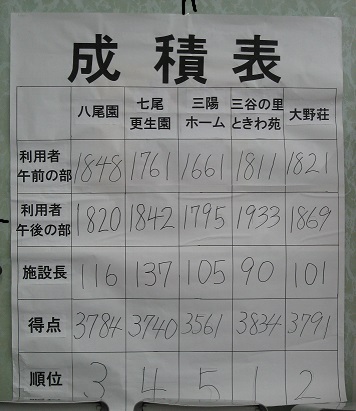 成積表
八尾園 七尾更生園 三陽ホーム 三谷の里ときわ苑 大野荘
利用者午前の部 1848 1761 1661 1811 1821
利用者午後の部 1820 1842 1795 1933 1869
施設長 116 137 105 90 101
得点 3784 3740 3561 3834 3791
順位 3 4 5 1 2